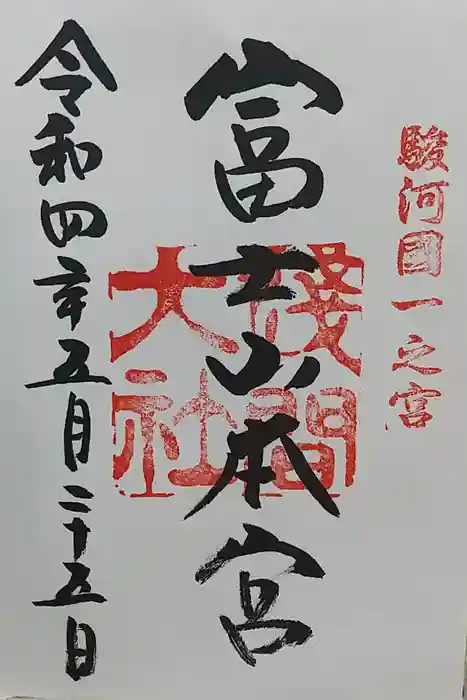 駿河國一之宮
富士山本宮
淺間
大社
令和四年五月二十五日